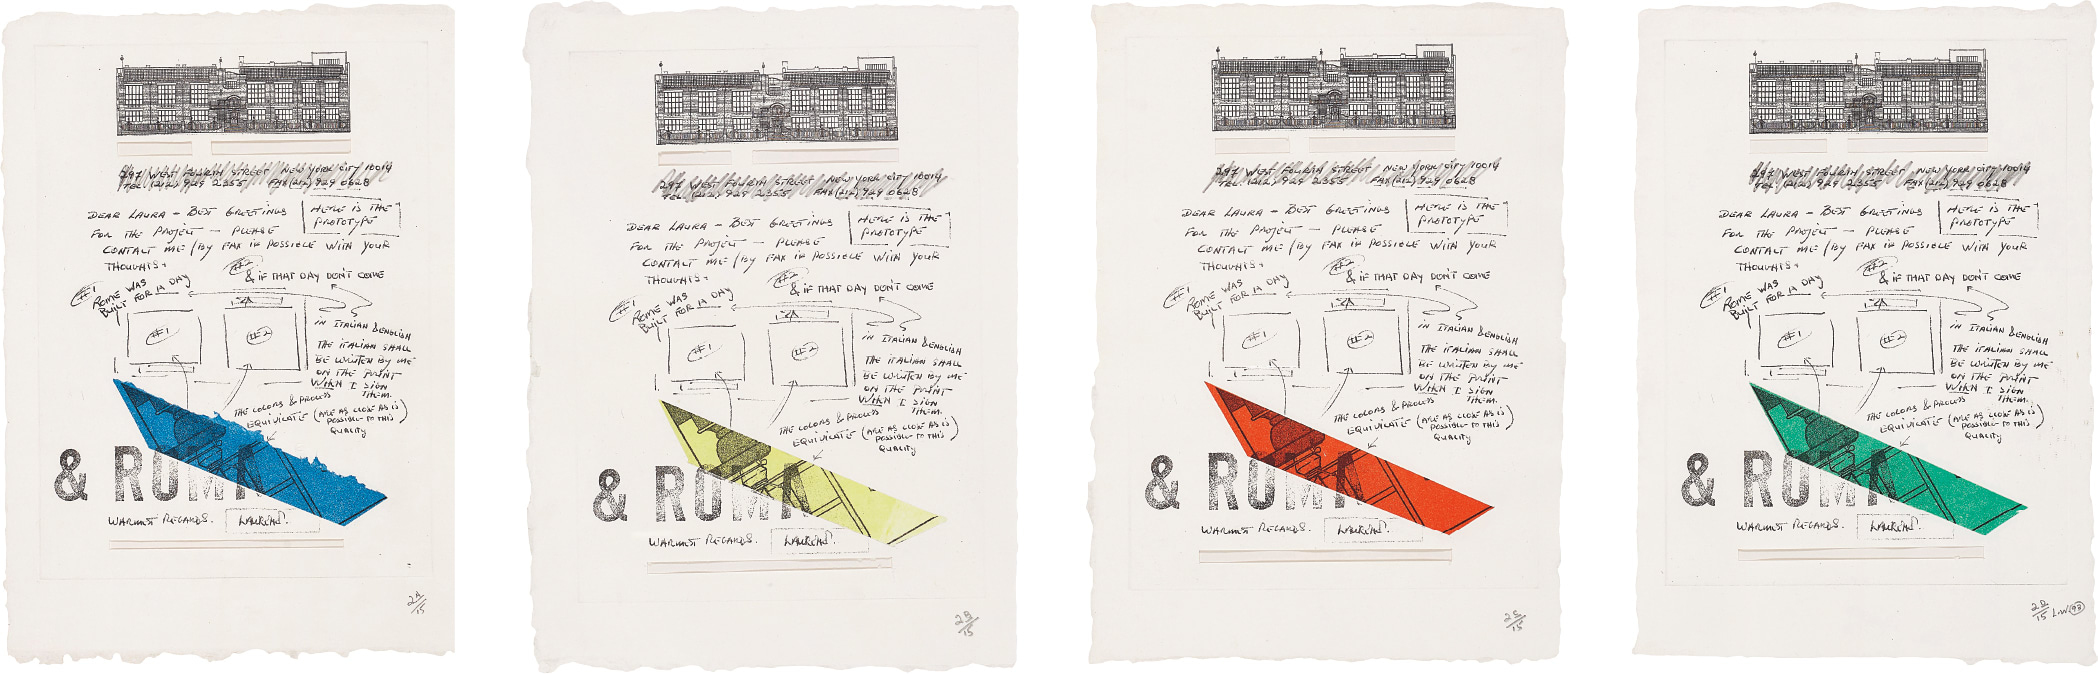 297 WEST FOURTH STREET NEW YORK CITY 10014
TEL. (212) 929 2355 FAX (212) 929 0628
DEAR LAURA – BEST GREETINGS
HERE IS THE
PROTOTYPE
FOR THE PROJECT – PLEASE
CONTACT ME / BY FAX IF POSSIBLE WITH YOUR
THOUGHTS.
#2
& IF THAT DAY DON'T COME
#1
ROME WAS
BUILT FOR A DAY
#1
#2
IN ITALIAN & ENGLISH
THE ITALIAN SHALL
BE WRITTEN BY ME
ON THE PRINT
WHEN I SIGN
THEM.
THE COLORS & PROCESS
EQUIVILATE (ARE AS CLOSE AS IS
POSSIBLE TO THIS)
QUALITY
& ROMA
WARMEST REGARDS.
LAWRENCE.
2A/15
297 WEST FOURTH STREET NEW YORK CITY 10014
TEL. (212) 929 2355 FAX (212) 929 0628
DEAR LAURA – BEST GREETINGS
HERE IS THE
PROTOTYPE
FOR THE PROJECT – PLEASE
CONTACT ME / BY FAX IF POSSIBLE WITH YOUR
THOUGHTS.
#2
& IF THAT DAY DON'T COME
#1
ROME WAS
BUILT FOR A DAY
#1
#2
IN ITALIAN & ENGLISH
THE ITALIAN SHALL
BE WRITTEN BY ME
ON THE PRINT
WHEN I SIGN
THEM.
THE COLORS & PROCESS
EQUIVILATE (ARE AS CLOSE AS IS
POSSIBLE TO THIS)
QUALITY
& ROMA
WARMEST REGARDS.
LAWRENCE.
2B/15
297 WEST FOURTH STREET NEW YORK CITY 10014
TEL. (212) 929 2355 FAX (212) 929 0628
DEAR LAURA – BEST GREETINGS
HERE IS THE
PROTOTYPE
FOR THE PROJECT – PLEASE
CONTACT ME / BY FAX IF POSSIBLE WITH YOUR
THOUGHTS.
#2
& IF THAT DAY DON'T COME
#1
ROME WAS
BUILT FOR A DAY
#1
#2
IN ITALIAN & ENGLISH
THE ITALIAN SHALL
BE WRITTEN BY ME
ON THE PRINT
WHEN I SIGN
THEM.
THE COLORS & PROCESS
EQUIVILATE (ARE AS CLOSE AS IS
POSSIBLE TO THIS)
QUALITY
& ROMA
WARMEST REGARDS.
LAWRENCE.
2C/15
297 WEST FOURTH STREET NEW YORK CITY 10014
TEL. (212) 929 2355 FAX (212) 929 0628
DEAR LAURA – BEST GREETINGS
HERE IS THE
PROTOTYPE
FOR THE PROJECT – PLEASE
CONTACT ME / BY FAX IF POSSIBLE WITH YOUR
THOUGHTS.
#2
& IF THAT DAY DON'T COME
#1
ROME WAS
BUILT FOR A DAY
#1
#2
IN ITALIAN & ENGLISH
THE ITALIAN SHALL
BE WRITTEN BY ME
ON THE PRINT
WHEN I SIGN
THEM.
THE COLORS & PROCESS
EQUIVILATE (ARE AS CLOSE AS IS
POSSIBLE TO THIS)
QUALITY
& ROMA
WARMEST REGARDS.
LAWRENCE.
2D/15 LW 93